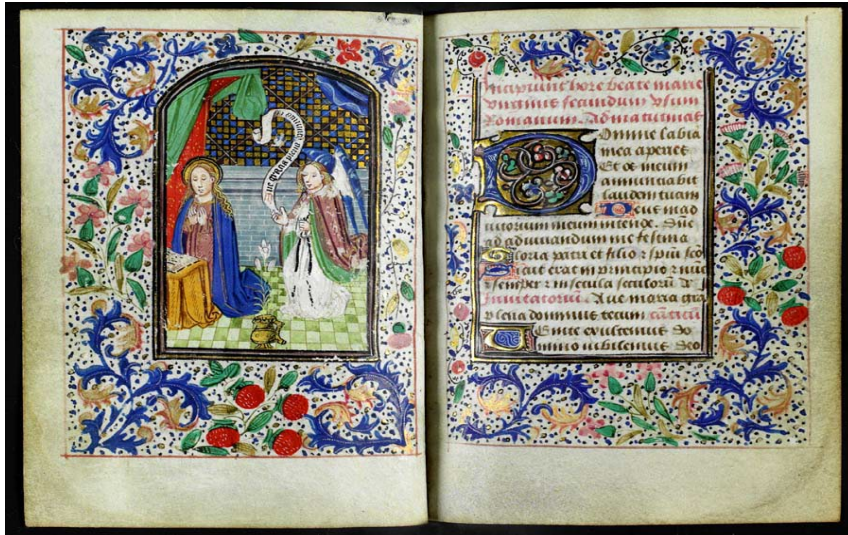 Aue Maria gracia plena
Incipiunt hore beate marie
virginis secundum vsum
Romanum. Ad matutinas
Domine labia
mea aperies
Et os meum
annunciabit
laudem tuam
Deus in ad
iutorium meum intende. Dne
ad adiuuandum me festina
Gloria patri et filio: spiui sco
Sicut erat in principio z nuc
z semper z in secula seculoru
Inuitatoriu. Aue maria gra
plena dominus tecum canticu
Uenite exultemus do
mino iubilemus deo